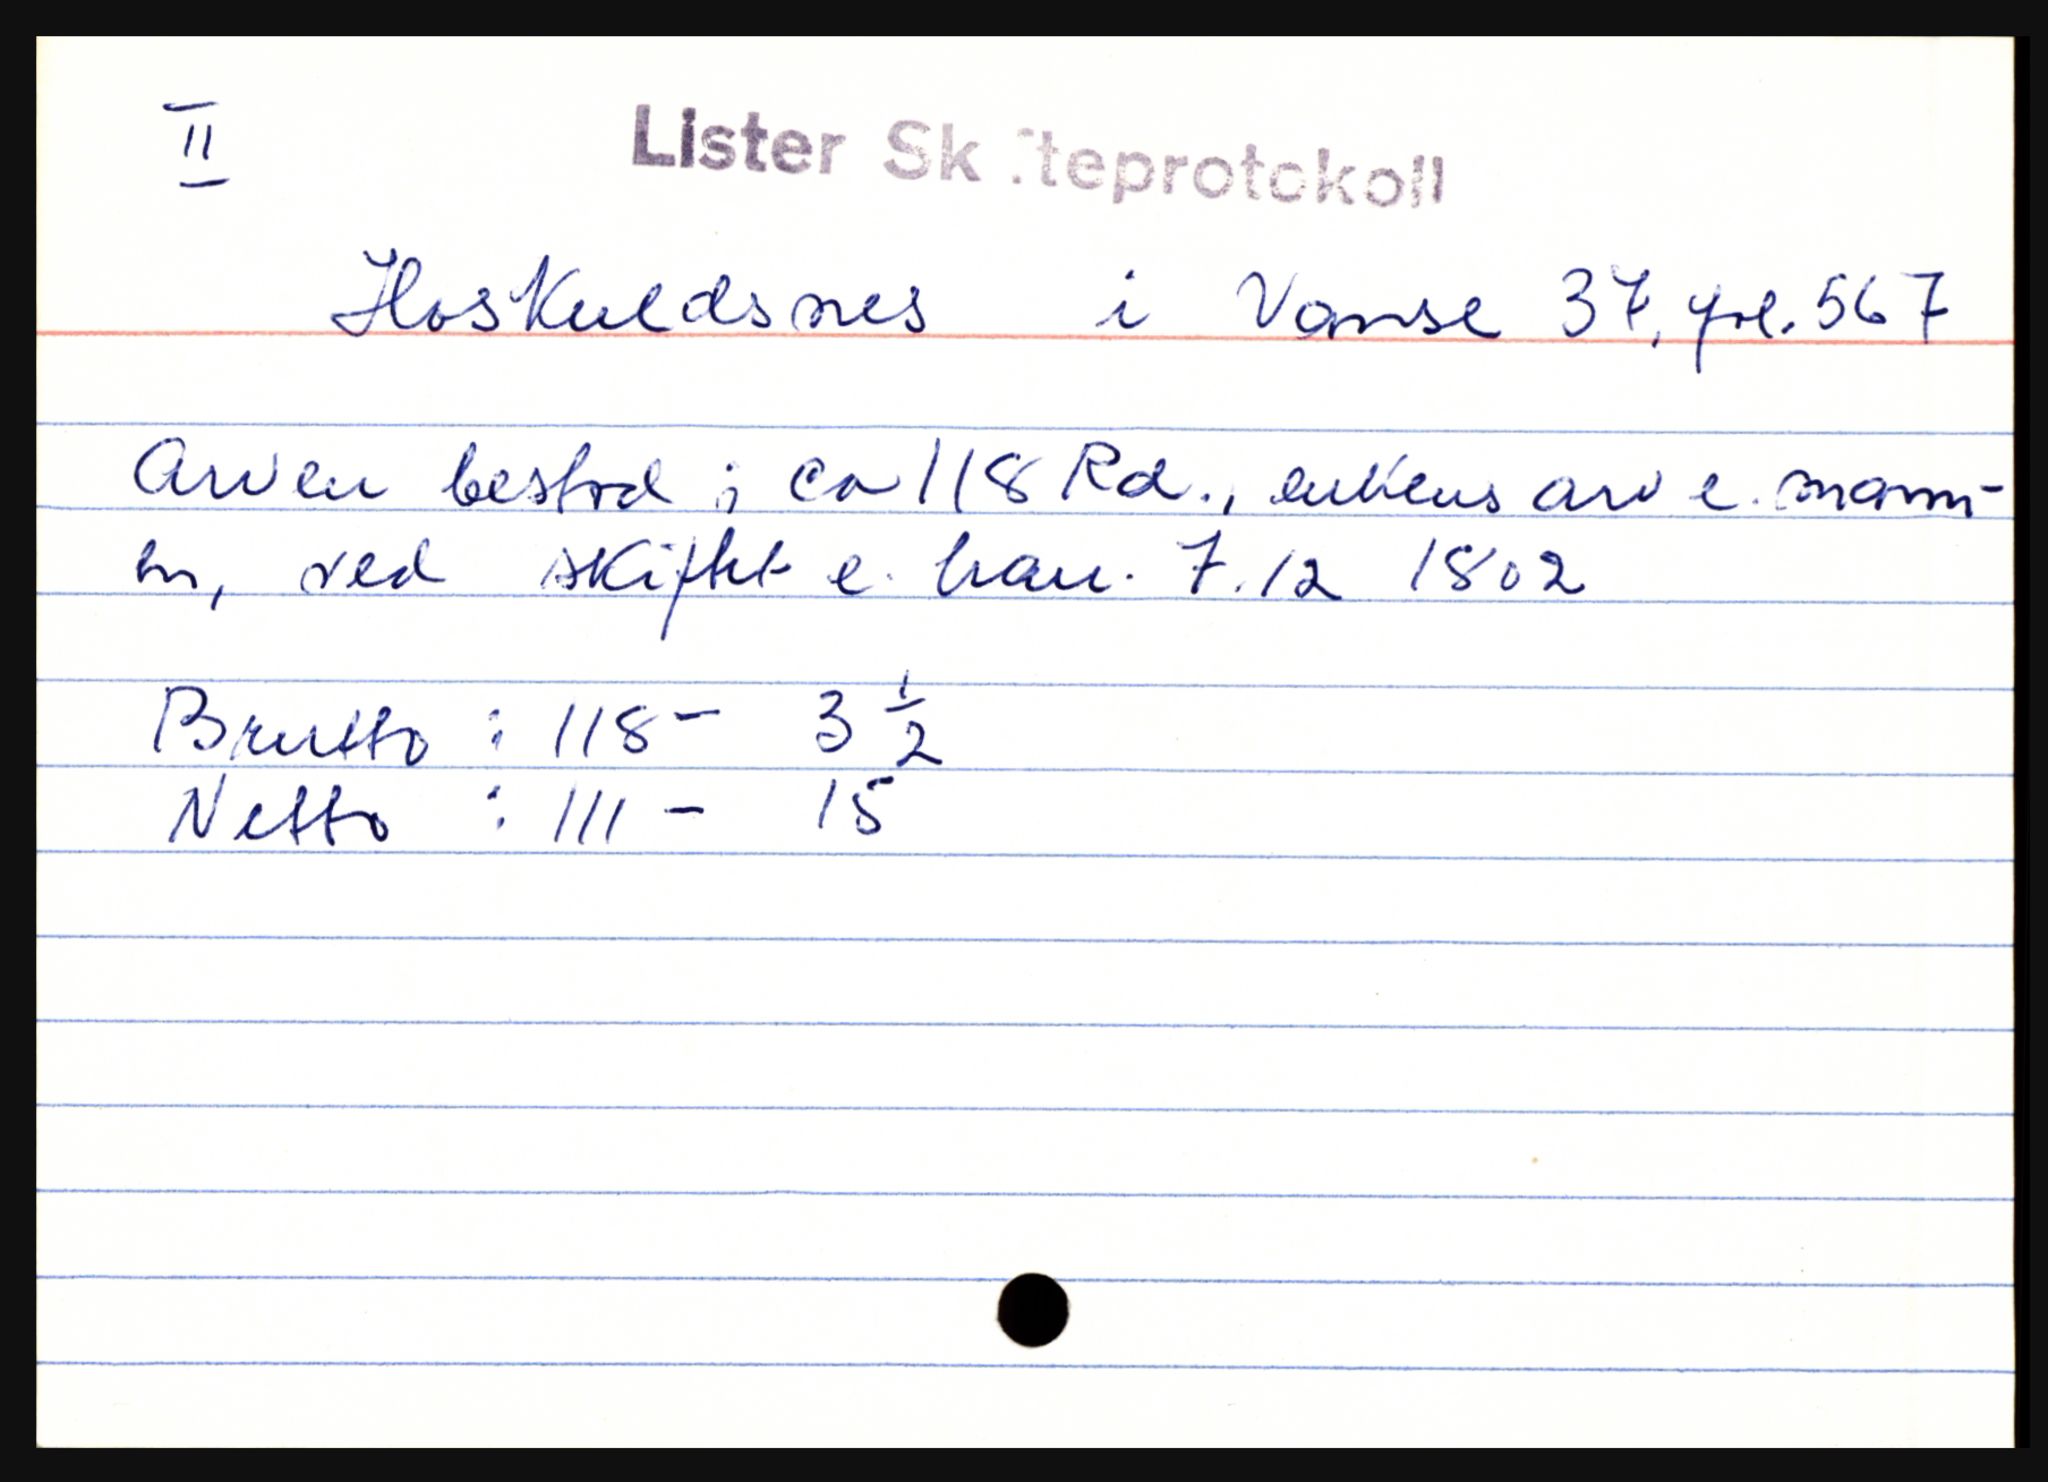 II
Lister Skifteprotokoll
Hoskuldsnes i Vanse 37, fol. 567
Arven bestod i ca 118 Rd., enkens arv e. mann-
en, ved skiftet e. ham. 7.12 1802
Brutto : 118 - 3 1/2
Netto : 111 - 15